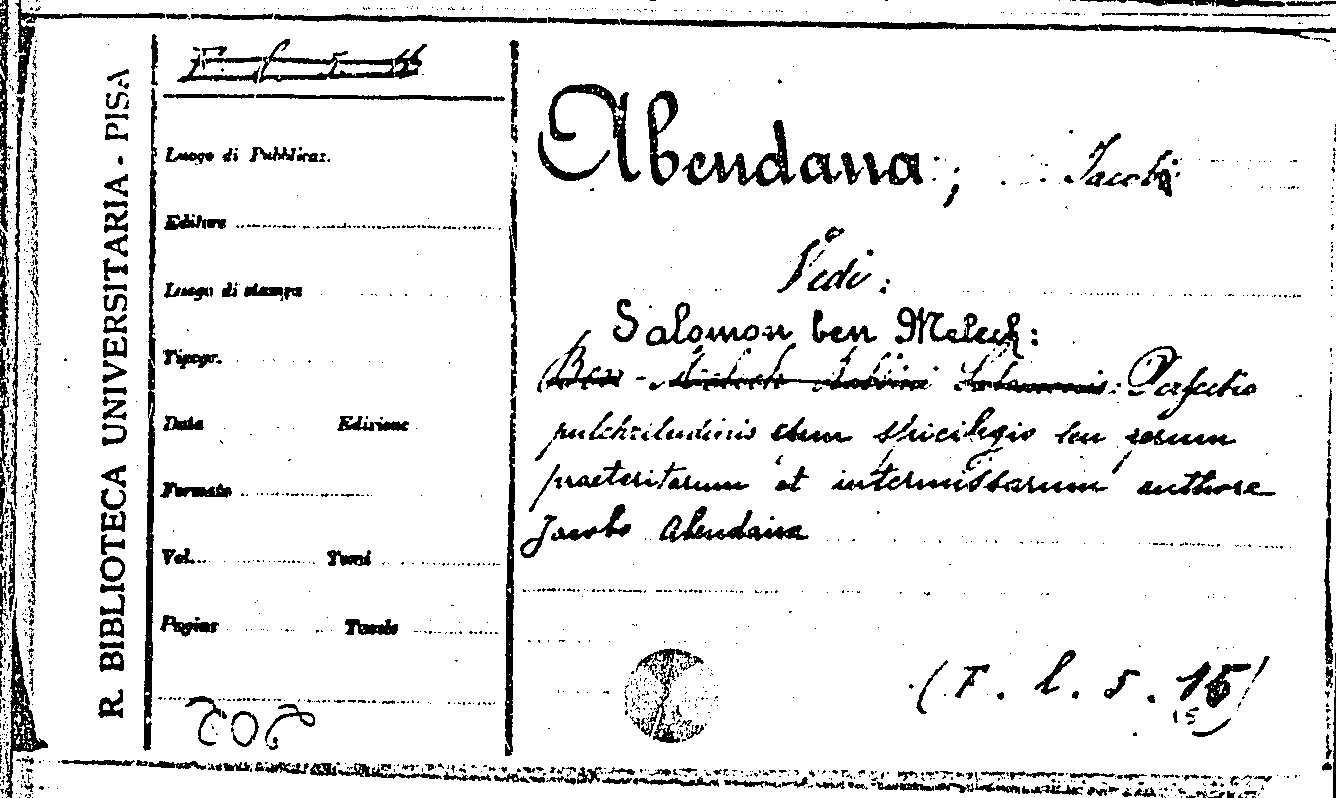 R. BIBLIOTECA UNIVERSITARIA - PISA
F. l. 5.
Luogo di Pubblicaz.
Editore
Luogo di stampa
Tipogr.
Data Edizione
Formato
Vol. Tomi
Pagine Tavole
Abendana; Jacobi
Vedi:
Salomon ben Melech:
Ben - Melech Rabbini Salomonis: Perfectio
pulchritudinis cum spicilegio seu rerum
praeteritarum et intermissarum authore
Jacobo Abendana
(F. l. 5. 15)
15